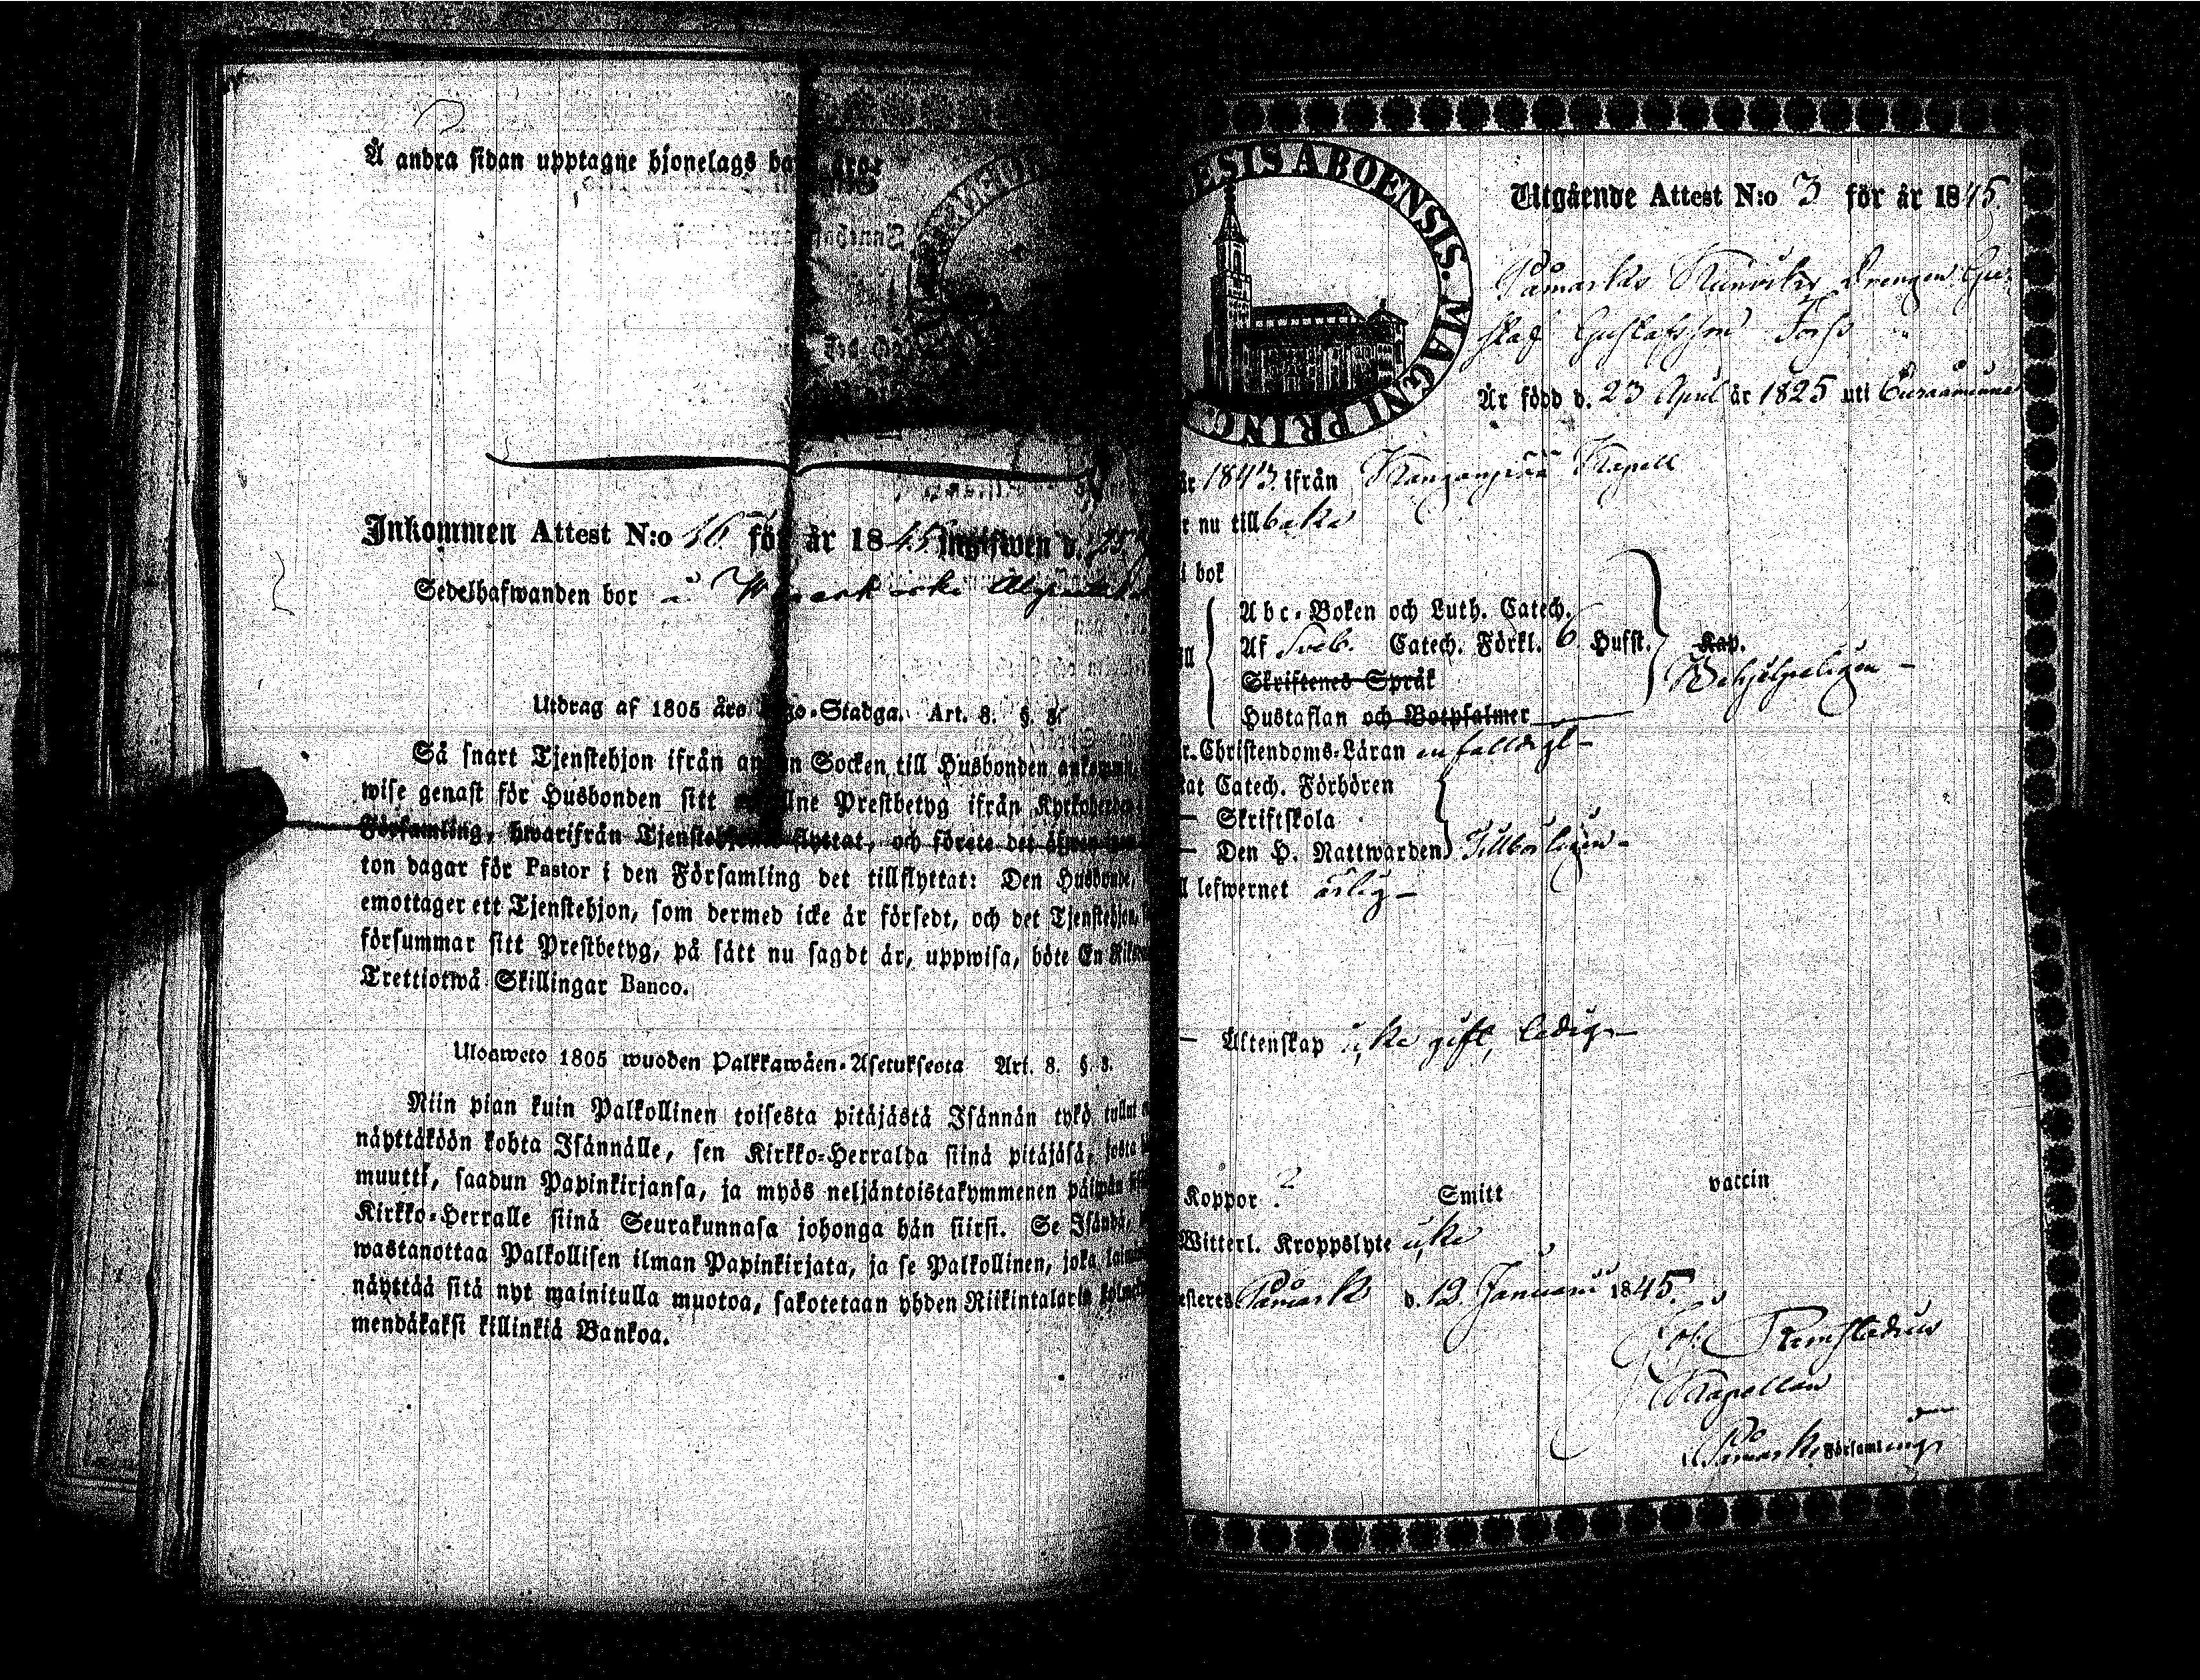 Å andra sidan upptagne hjonelags
Inkommen Attest N:o 16 för år 1845 ingifwen d. 25
Sedelhafwanden bor
Utdrag af 1805 års Lego-Stadga. Art. 8. §. 3.
Så snart Tjenstehjon ifrån annan Socken till Husbonden
wise genast för Husbonden sitt Prestbetyg ifrån
Församling, hwarifrån Tjenstehjonet flyttat, och förete det
ton dagar för Pastor i den Församling det tillflyttat: Den Husbonde,
emottager ett Tjenstehjon, som dermed icke är försedt, och det Tjenstehjon,
försummar sitt Prestbetyg, på sätt nu sagdt är, uppwisa, böte En
Trettiotwå Skillingar Banco.
Ulosweto 1805 wuoden Palkkawäen-Asetuksesta Art. 8. § 3.
Niin pian kuin Palkollinen toisesta pitäjästä Isännän tykö tullut
näyttäköön kohta Isännälle, sen Kirkko-Herralda siinä pitäjäsä, josta
muutti, saadun Papinkirjansa, ja myös neljäntoistakymmenen päiwän
Kirkko-Herralle siinä Seurakunnasa johonga hän siirsi. Se Isändä,
wastanottaa Palkollisen ilman Papinkirjata, ja se Palkollinen, joka
näyttää sitä nyt mainitulla muotoa, sakotetaan yhden Riikintalarin
mendäkaksi killinkiä Bankoa.
ESIS ABOENSIS. MAGNI PRINC
Utgående Attest N:o 3 för år 1845.
Påmarks Drengen Gu-
staf Gustafsson Forss
Är född d. 23 April år 1825 uti Euraåminne
år 1843 ifrån Kapell
r nu tillbaka
i bok
Abc-Boken och Luth. Catech.
Af Sveb. Catech. Förkl. 6 Hufst. Kap.
Skriftenes Språk Behjelpeligen -
Hustaflan och Botpsalmer
r. Christendoms-Läran enfalldigt -
tat Catech. Förhören
— Skriftskola
— Den H. Nattwarden Tillbörligen -
ll lefwernet ärlig -
— Äktenskap icke gift, ledig -
Koppor ? Smitt vaccin
Witterl. Kroppslyte icke
esteres Påmark d. 12 Januarii 1845.
Joh.
Kapellan
i Påmarks Församling